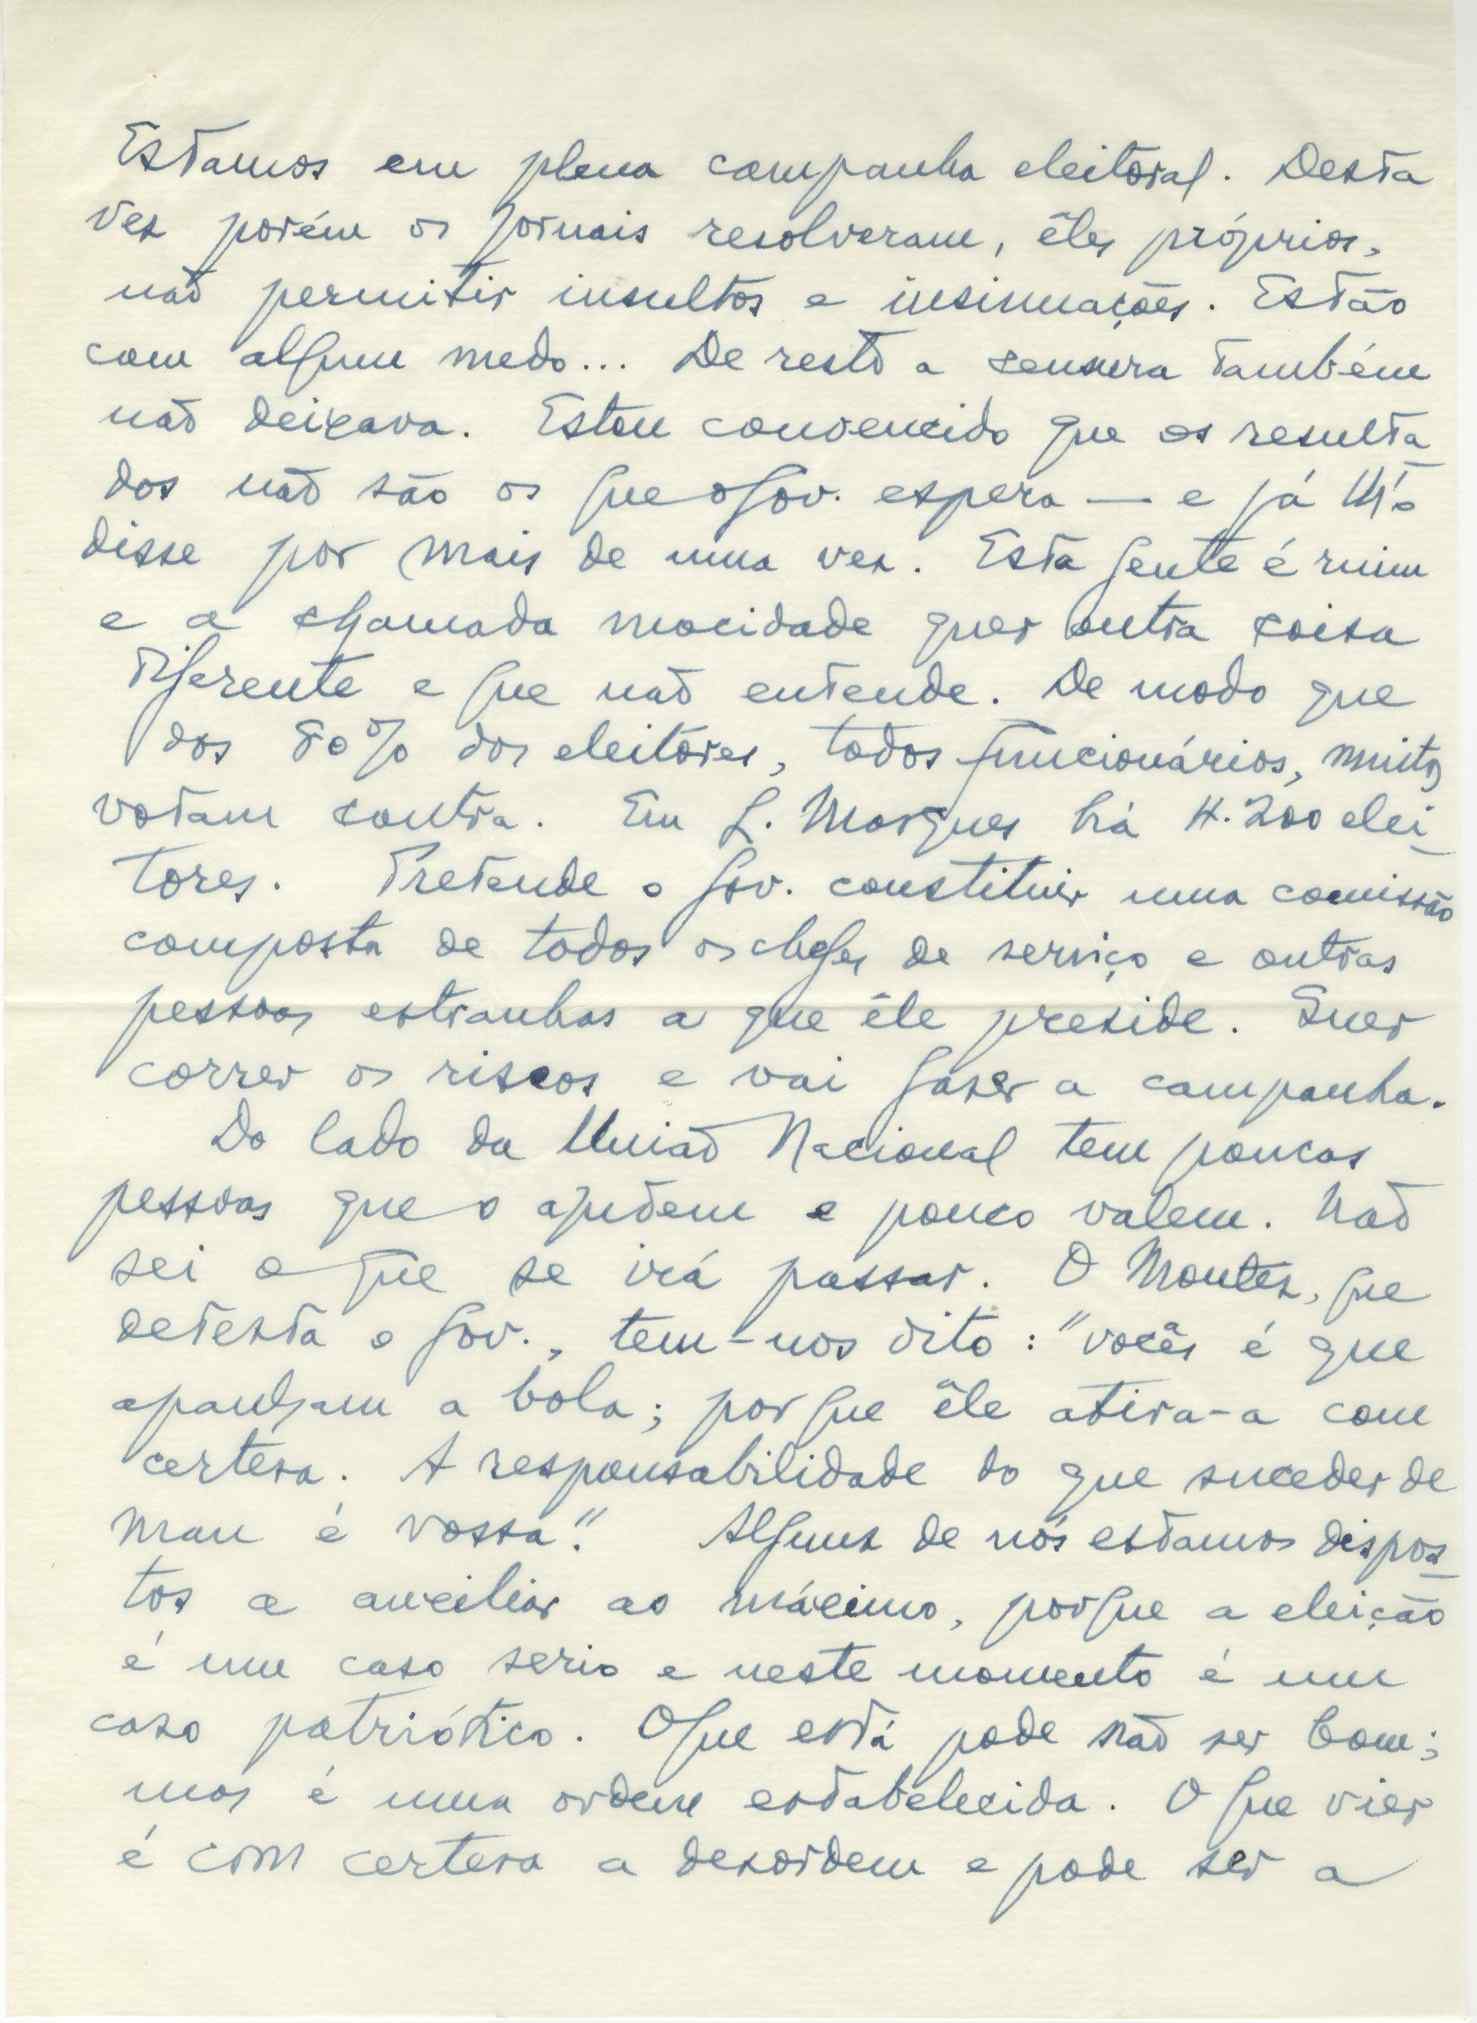 Estamos em plena campanha eleitoral. Desta
vez porém os jornais resolveram, êles próprios,
não permitir insultos e insinuações. Estão
com algum medo... De resto a censura também
não deixava. Estou convencido que os resulta-
dos não são os que o Gov. espera — e já lh'o
disse por mais de uma vez. Esta gente é ruim
e a chamada mocidade quer outra coisa
diferente e que não entende. De modo que
dos 80% dos eleitôres, todos funcionários, muitos
votam contra. Em L. Marques há 4.200 elei-
tores. Pretende o Gov. constituir uma comissão
composta de todos os chefes de serviço e outras
pessoas estranhas a que êle preside. Quer
correr os riscos e vai fazer a campanha.
Do lado da União Nacional tem poucas
pessoas que o ajudem e pouco valem. Não
sei o que se irá passar. O Montez, que
detesta o Gov., tem-nos dito: "vocês é que
apanham a bola; porque êle atira-a com
certeza. A responsabilidade do que suceder de
mau é vossa." Alguns de nós estamos dispos-
tos a auxiliar ao máximo, porque a eleição
é um caso serio e neste momento é um
caso patriótico. O que está pode não ser bom;
mas é uma ordem estabelecida. O que vier
é com certeza a desordem e pode ser a